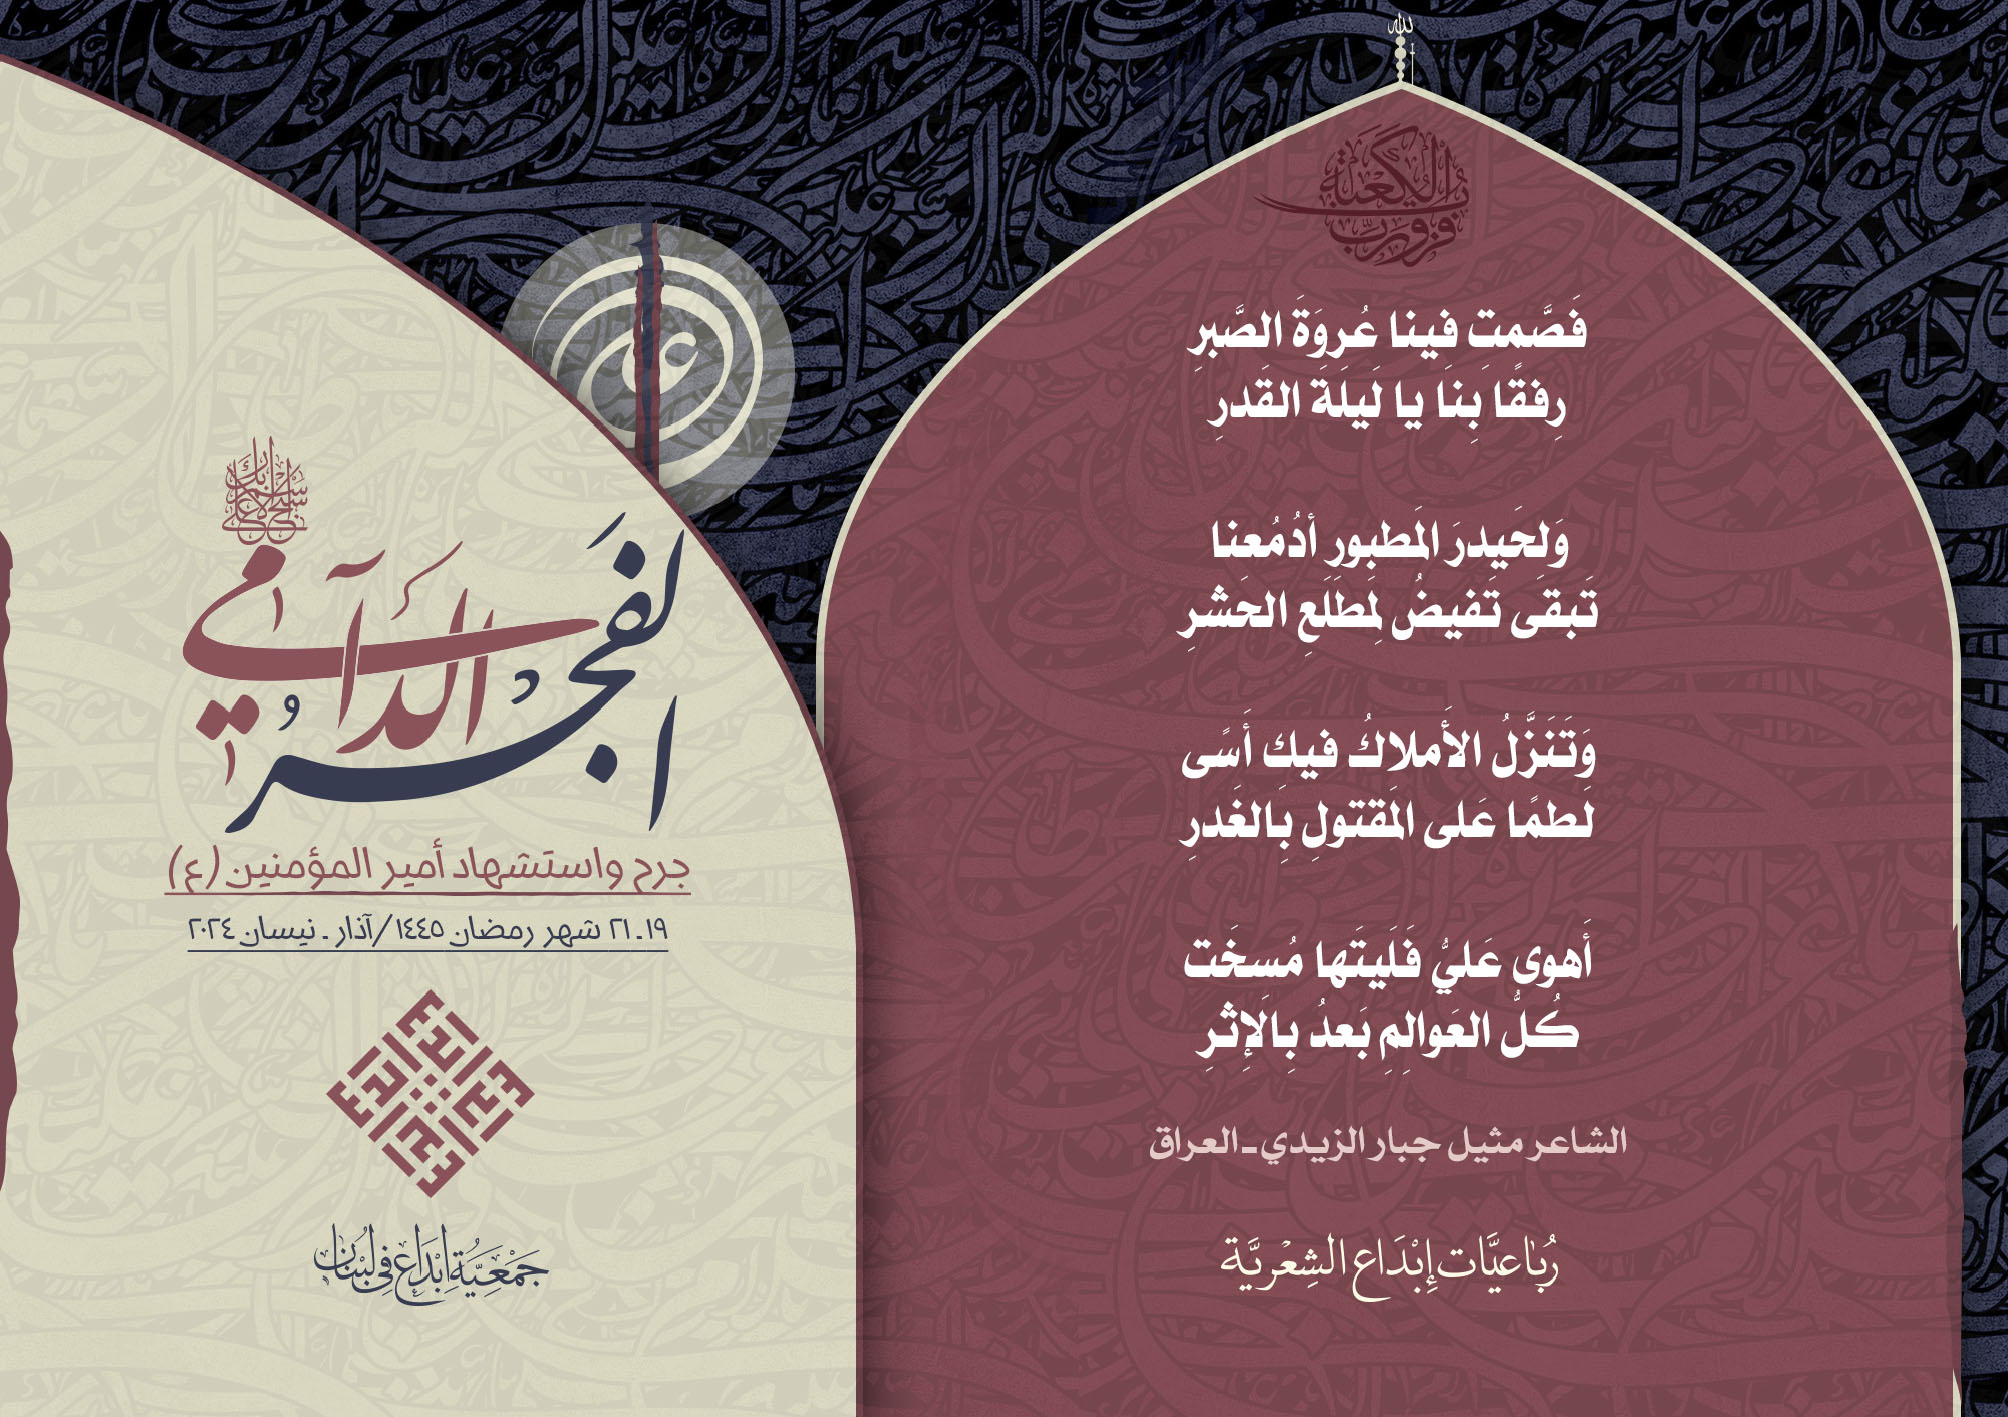 الله
فزت ورب الكعبة
فَصَّمتِ فينا عُروَةَ الصَّبرِ
رِفقًا بِنَا يا لَيلَةَ القَدرِ
وَلِحَيدرَ المَطبورِ أدُمُعنا
تَبقَى تَفيضُ لِمَطلَعِ الحَشرِ
وَتَنَزَّلُ الأَملاكُ فيكِ أَسًى
لطمًا عَلى المَقتولِ بِالغَدرِ
أَهوى عَليُّ فَلَيتَها مُسخَت
كُلُّ العَوالِمِ بَعدُ بِالإِثرِ
الشاعر مثيل جبار الزيدي ـ العراق
رُبَاعيَّات إِبْدَاع الشِعْريَّة
علي
سبح اسم ربك الأعلى
الفجرُ الدَّآمي
جرح واستشهاد أمير المؤمنين (ع)
١٩ ـ ٢١ شهر رمضان ١٤٤٥ / آذار ـ نيسان ٢٠٢٤
جَمْعِيَّة إِبْدَاع في لُبْنَان